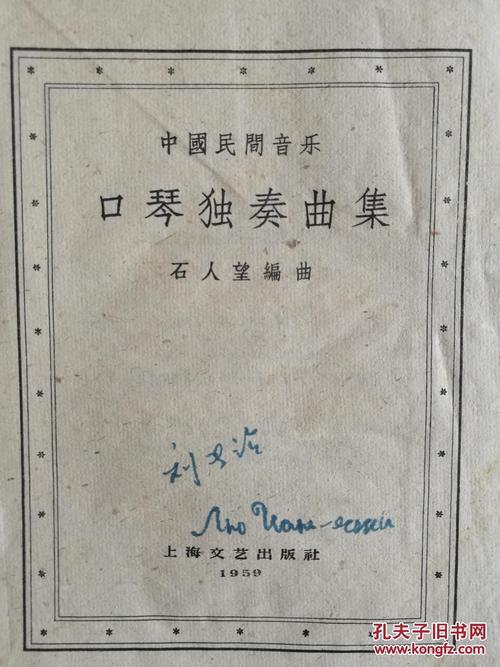 中國民間音乐
口琴独奏曲集
石人望編曲
上海文艺出版社
1959
孔夫子旧书网
www.kongfz.com